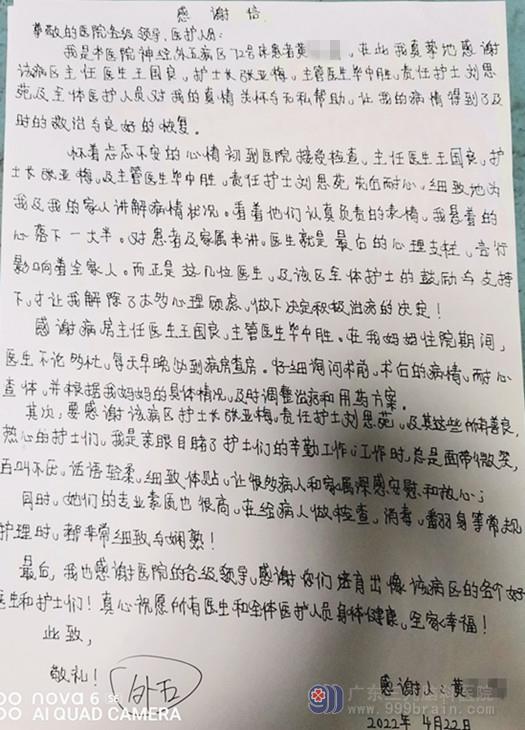 感谢信
尊敬的医院各级领导、医护人员:
我是本医院神经外五病区72号床患者黄 ，在此我真挚地感谢
该病区主任医生王国良，护士长张亚梅，主管医生华中胜，责任护士刘思
苑及全体医护人员对我的真情关怀与无私帮助，让我的病情得到了及
时的救治与良好的恢复。
怀着忐忑不安的心情初到医院接受检查，主任医生王国良，护
士长张亚梅，及主管医生华中胜，责任护士刘思苑 耐心，细致地为
我及我的家人讲解病情状况。看着他们认真负责的表情，我悬着的
心落下一大半。对患者及家属来讲，医生就是最后的心理支柱，言行
影响着全家人。而正是这几位医生，及该区全体护士的鼓励与支持
下，才让我解除了太多心理顾虑，做下决定积极治疗的决定！
感谢病房主任医生王国良，主管医生华中胜。在我妈妈住院期间，
医生不论多忙，每天早晚必到病房查房。仔细询问术前，术后的病情，耐心
查体，并根据我妈妈的具体情况，及时调整治疗和用药方案。
其次，要感谢该病区护士长张亚梅，责任护士刘思苑，及其这些所有善良，
热心的护士们，我是亲眼目睹了护士们的辛勤工作；工作时，总是面带微笑，
百叫不厌，话语轻柔，细致体贴，让很多病人和家属深感安慰和放心；
同时，她们的专业素质也很高，在给病人做检查，消毒，翻身等常规
护理时，都非常细致与娴熟！
最后，我也感谢医院的各级领导，感谢你们培育出像该病区的各个好
医生和护士们！真心祝愿所有医生和全体医护人员身体健康，全家幸福！
此致，
敬礼！
外五
感谢人：黄
2022年4月22日
nova 6 5G
AI QUAD CAMERA
广东三九脑科医院
www.999brain.com